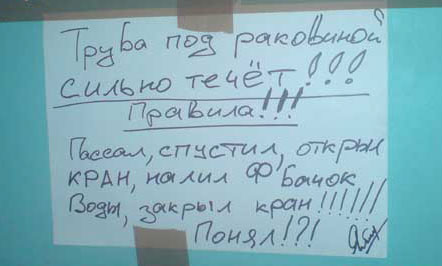 Труба под раковиной
сильно течёт!!!
Правила!!!
Поссал, спустил, открыл
кран, налил Ф бачок
Воды, закрыл кран!!!!!!!
Понял!?!